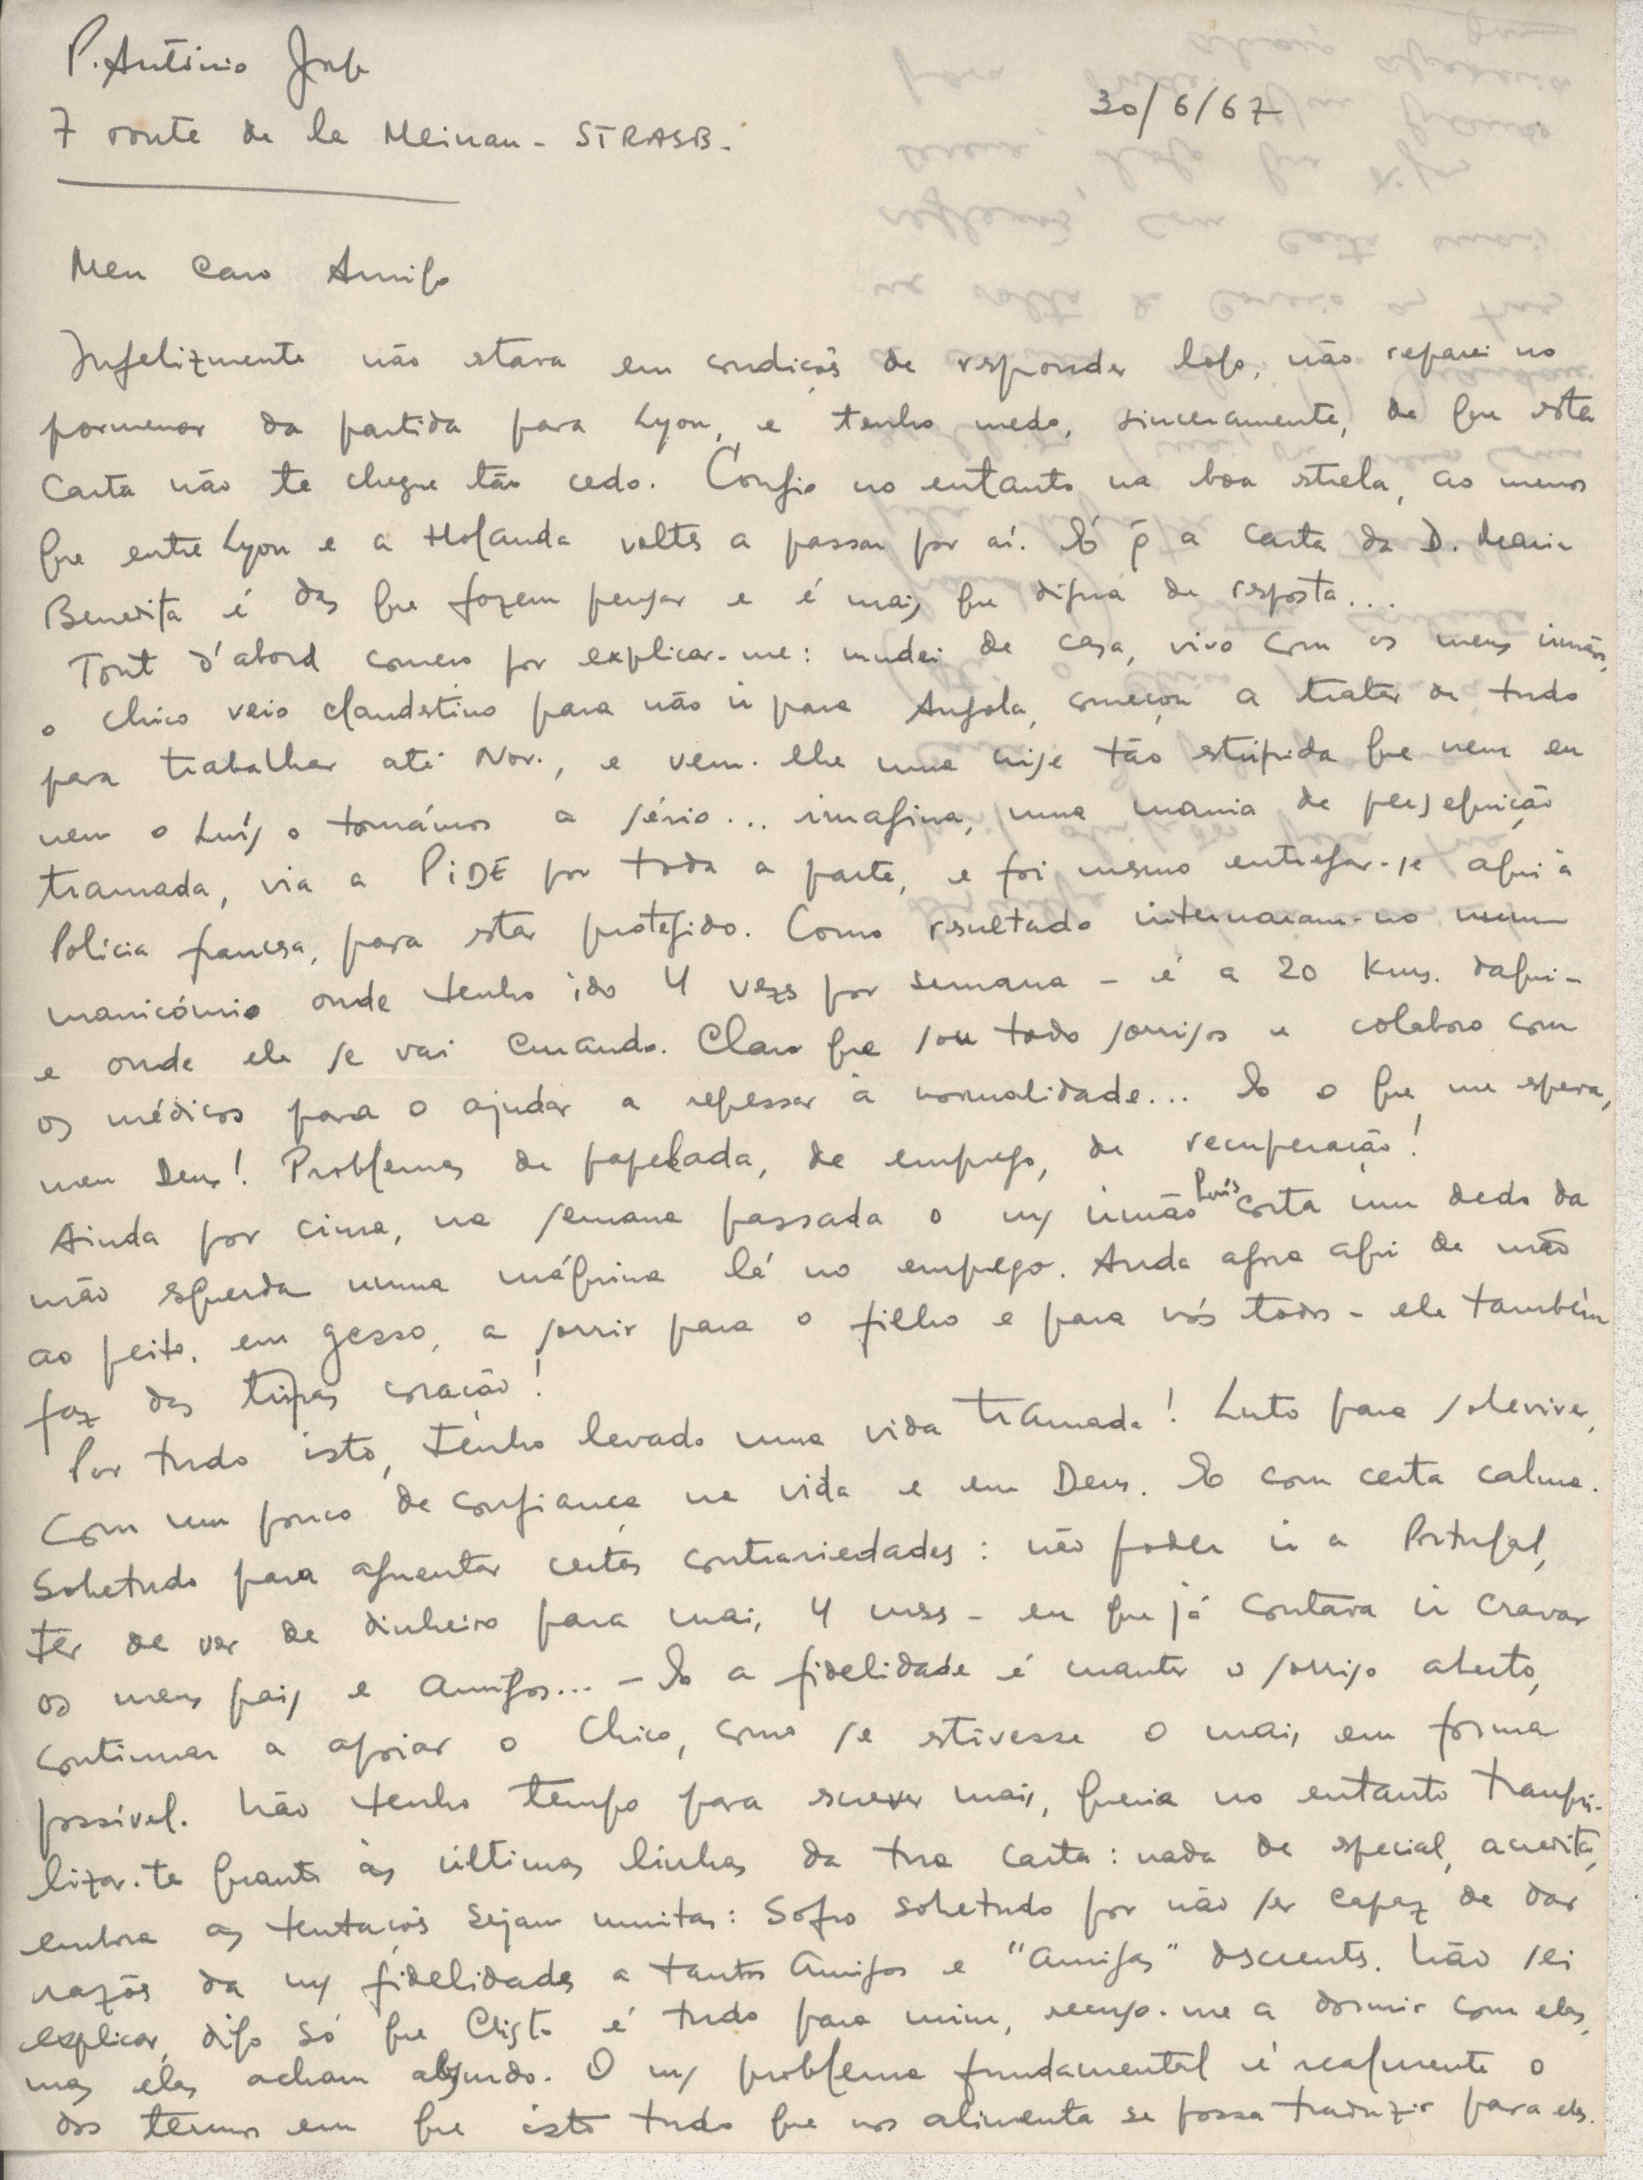 P. António Jorge
7 route de la Meinau - STRASB.
30/6/67
Meu Caro Amigo
Infelizmente não stava em condiçõs de responder logo, não reparei no
pormenor da partida para Lyon, e tenho medo, sinceramente, de que sta
Carta não te chegue tão cedo. Confio no entanto na boa strela, ao menos
que entre Lyon e a Holanda voltes a passar por aí. É q̃ a Carta da D. Maria
Benedita é das que fazem pensar e é mais que digna de resposta...
Tout d'abord começo por explicar-me: mudei de casa, vivo com os meus irmãos,
o Chico veio clandestino para não ir para Angola, começou a tratar de tudo
para trabalhar até Nov., e vem-lhe uma crise tão stúpida que nem eu
nem o Luís o tomámos a sério... imagina, uma mania de perseguição
tramada, via a PIDE por toda a parte, e foi mesmo entregar-se aqui à
Polícia francesa, para star protegido. Como resultado internaram-no num
manicómio onde tenho ido 4 vezes por semana - é a 20 Kms. daqui -
e onde ele se vai curando. Claro que sou todo sorrisos e colaboro com
os médicos para o ajudar a regressar à normalidade... É o que me spera,
meu Deus! Problemas de papelada, de emprego, de recuperação!
Ainda por cima, na semana passada o m/ irmão Luís corta um dedo da
mão squerda numa máquina lá no emprego. Anda agora aqui de mão
ao peito, em gesso, a sorrir para o filho e para nós todos - ele também
faz das tripas coração!
Por tudo isto, tenho levado uma vida tramada! Luto para sobreviver,
Com um pouco de confiança na vida e em Deus. E com certa calma.
Sobretudo para aguentar certas contrariedades: não poder ir a Portugal,
ter de ver de dinheiro para mais 4 meses - eu que já contava ir cravar
os meus pais e amigos... - E a fidelidade é manter o sorriso aberto,
continuar a apoiar o Chico, como se stivesse o mais em forma
possível. Não tenho tempo para screver mais, queria no entanto tranqui-
lizar-te quanto às últimas linhas da tua carta: nada de special, acredita,
embora as tentaçõs sejam muitas: Sofro sobretudo por não ser capaz de dar
razõs da m/ fidelidade a tantos Amigos e "Amigas" descrentes. Não sei
explicar, digo só que Cristo é tudo para mim, recuso-me a dormir com elas,
mas elas acham absurdo. O m/ problema fundamental é realmente o
dos termos em que isto tudo que nos alimenta se possa traduzir para eles.